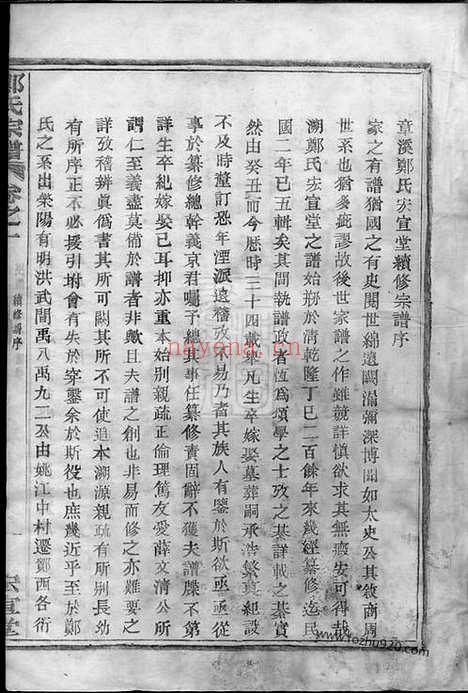 章溪鄭氏宏宣堂續修宗譜序
家之有譜猶國之有史閱世綿遠闕漏滋深博聞如太史公其敘商周
世系也猶多疵謬故後世家譜之作雖競詳慎欲求其無瘢安可得哉
溯鄭氏宏宣堂之譜始刱於清乾隆丁巳二百餘年來幾經纂修迄民
國二年已五輯矣其間執譜政者恆為頌學之士攷之綦詳載之綦實
然由癸丑而今曆時三十四載來凡生卒嫁娶墓葬嗣承浩繁莫紀設
不及時釐訂恐年湮派遠稽攷不易乃耆其族人有鑒於斯欲亟亟從
事於纂修總幹義京君囑予總其事任纂修責固辭不獲夫譜牒不第
詳生卒紀嫁娶已耳抑亦重本始別親疏正倫理篤友愛薛文清公所
謂仁至義盡莫備於譜者非歟且夫譜之創也非易而修之亦難要之
詳攷稽辨眞僞書其所可闕其所不可使追本溯源親疏有所別長幼
有所序正不必援引坿會有失於穿鑿余於斯役也庶幾近乎至於鄭
氏之系出滎陽有明洪武間禹八禹九二公由姚江中村遷鄮西各衖
鄭氏宗譜 卷之一
續修譜序
一
宏宣堂
nayona.cn
www.fozhu920.com